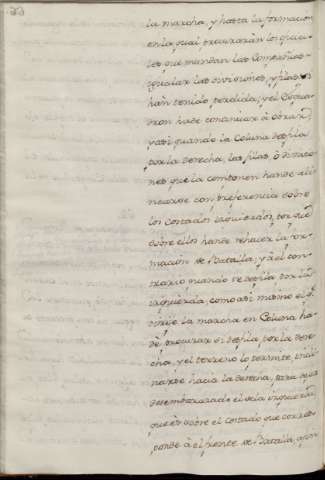 la marcha, y hasta la formacion
en la qual procuraràn los oficia-
les que mandan las Compañias
igualar las divisiones, y filas
han tenido perdida; y el Esqua-
dron ha de continuar à obrar
y asi quando la Coluna desfila
por la derecha, las filas ò divisio-
nes que la componen han de ali-
nearse con preferencia sobre
los costados izquierdos, por que
sobre ellos han de rehacer la for-
macion de Batalla; y à el con-
trario quando se desfila por la
izquierda, como asi mismo el qe.
dirije la marcha en Coluna ha
de procurar si desfila por la dere-
cha, y el terreno lo permite, incli-
narse hacia la derecha, para dejar
desembarazada el de la izquierda
que es sobre el costado que corres-
ponde à el frente de Batalla,